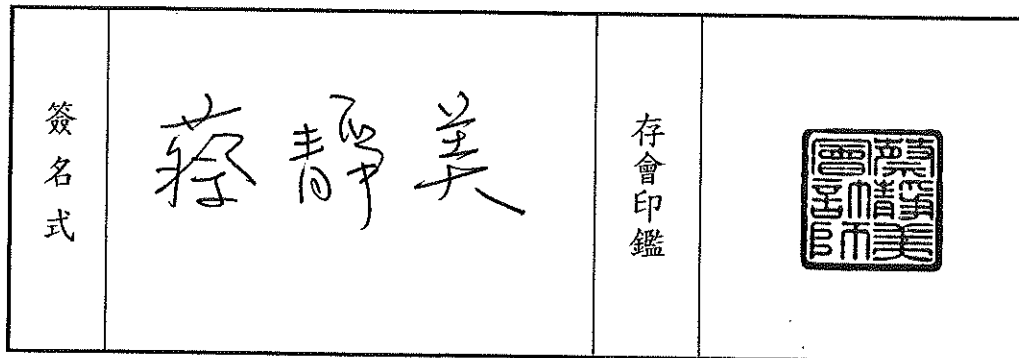 簽名式
蔡靜美
存會印鑑
蔡靜美會計師